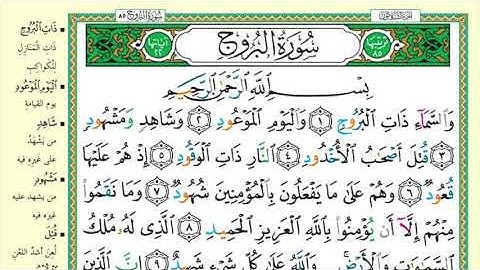 سُورَةُ البُرُوجِ ٨٥
سُورَةُ البُرُوجِ
ترتيبها ٨٥
آياتها ٢٢
بِسْمِ اللَّهِ الرَّحْمَٰنِ الرَّحِيمِ
وَالسَّمَاءِ ذَاتِ الْبُرُوجِ ١ وَالْيَوْمِ الْمَوْعُودِ ٢ وَشَاهِدٍ وَمَشْهُودٍ
٣ قُتِلَ أَصْحَٰبُ الْأُخْدُودِ ٤ النَّارِ ذَاتِ الْوَقُودِ ٥ إِذْ هُمْ عَلَيْهَا
قُعُودٌ ٦ وَهُمْ عَلَىٰ مَا يَفْعَلُونَ بِالْمُؤْمِنِينَ شُهُودٌ ٧ وَمَا نَقَمُوا
مِنْهُمْ إِلَّا أَن يُؤْمِنُوا بِاللَّهِ الْعَزِيزِ الْحَمِيدِ ٨ الَّذِي لَهُ مُلْكُ
السَّمَٰوَٰتِ وَالْأَرْضِ وَاللَّهُ عَلَىٰ كُلِّ شَيْءٍ شَهِيدٌ ٩ إِنَّ الَّذِينَ
ذَاتِ الْبُرُوجِ
ذَاتِ الْمَنَازِلِ
لِلْكَوَاكِبِ
الْيَوْمِ الْمَوْعُودِ
يوم القيامة
شَاهِدٍ
من يشهد
على غيره فيه
مَشْهُودٍ
من يشهد عليه
غيره فيه
قُتِلَ
لُعِنَ أشدّ اللعن